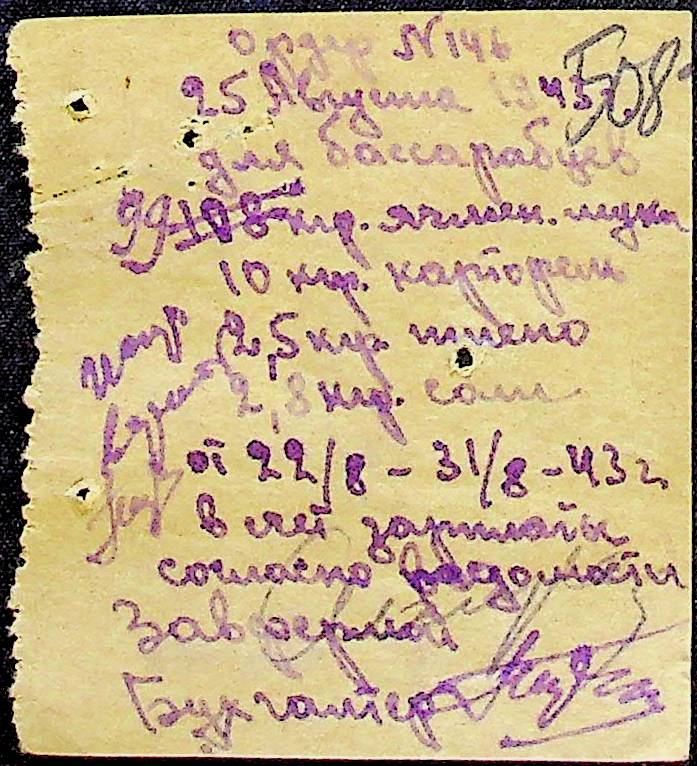 Ордер N 146
508
25 Августа 1943 г.
для бассарабцев
99 108 кгр. ячмен. муки
10 кгр. картофель
2,5 кгр. пшено
2,8 кгр. соли
от 22/8 - 31/8 - 43 г.
в счет зарплаты
согласно ведомости
Зав фермой
Бургалтер